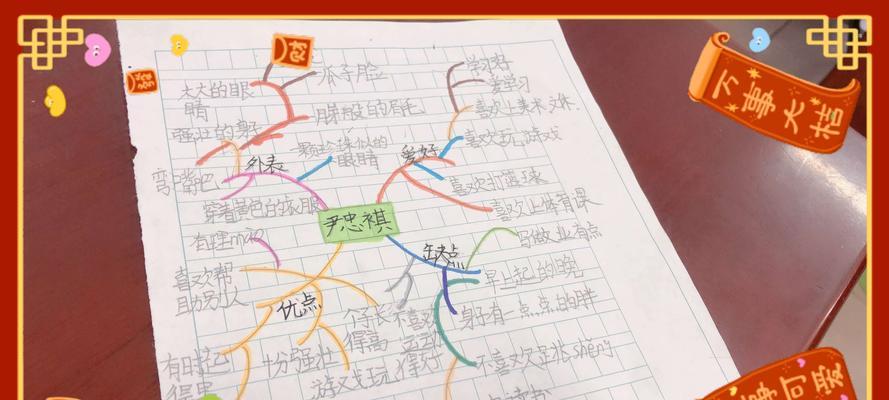 大大的眼
睛
强壮的身子
弯嘴巴
穿着黄色的衣服
瓜子脸
眉毛
眼睛
外表
尹忠祺
爱好
学习好
爱学习
喜欢上美术
喜欢玩游戏
喜欢打蓝球
喜欢上体育课
缺点
写做业有点
早上起的晚
身子有一点点的胖
不喜欢
优点
有理mao
喜欢帮
助别人
个子长
得高
不喜欢
运动
十分强壮
游戏玩
得好
有时起
得早
万事大桔
可爱